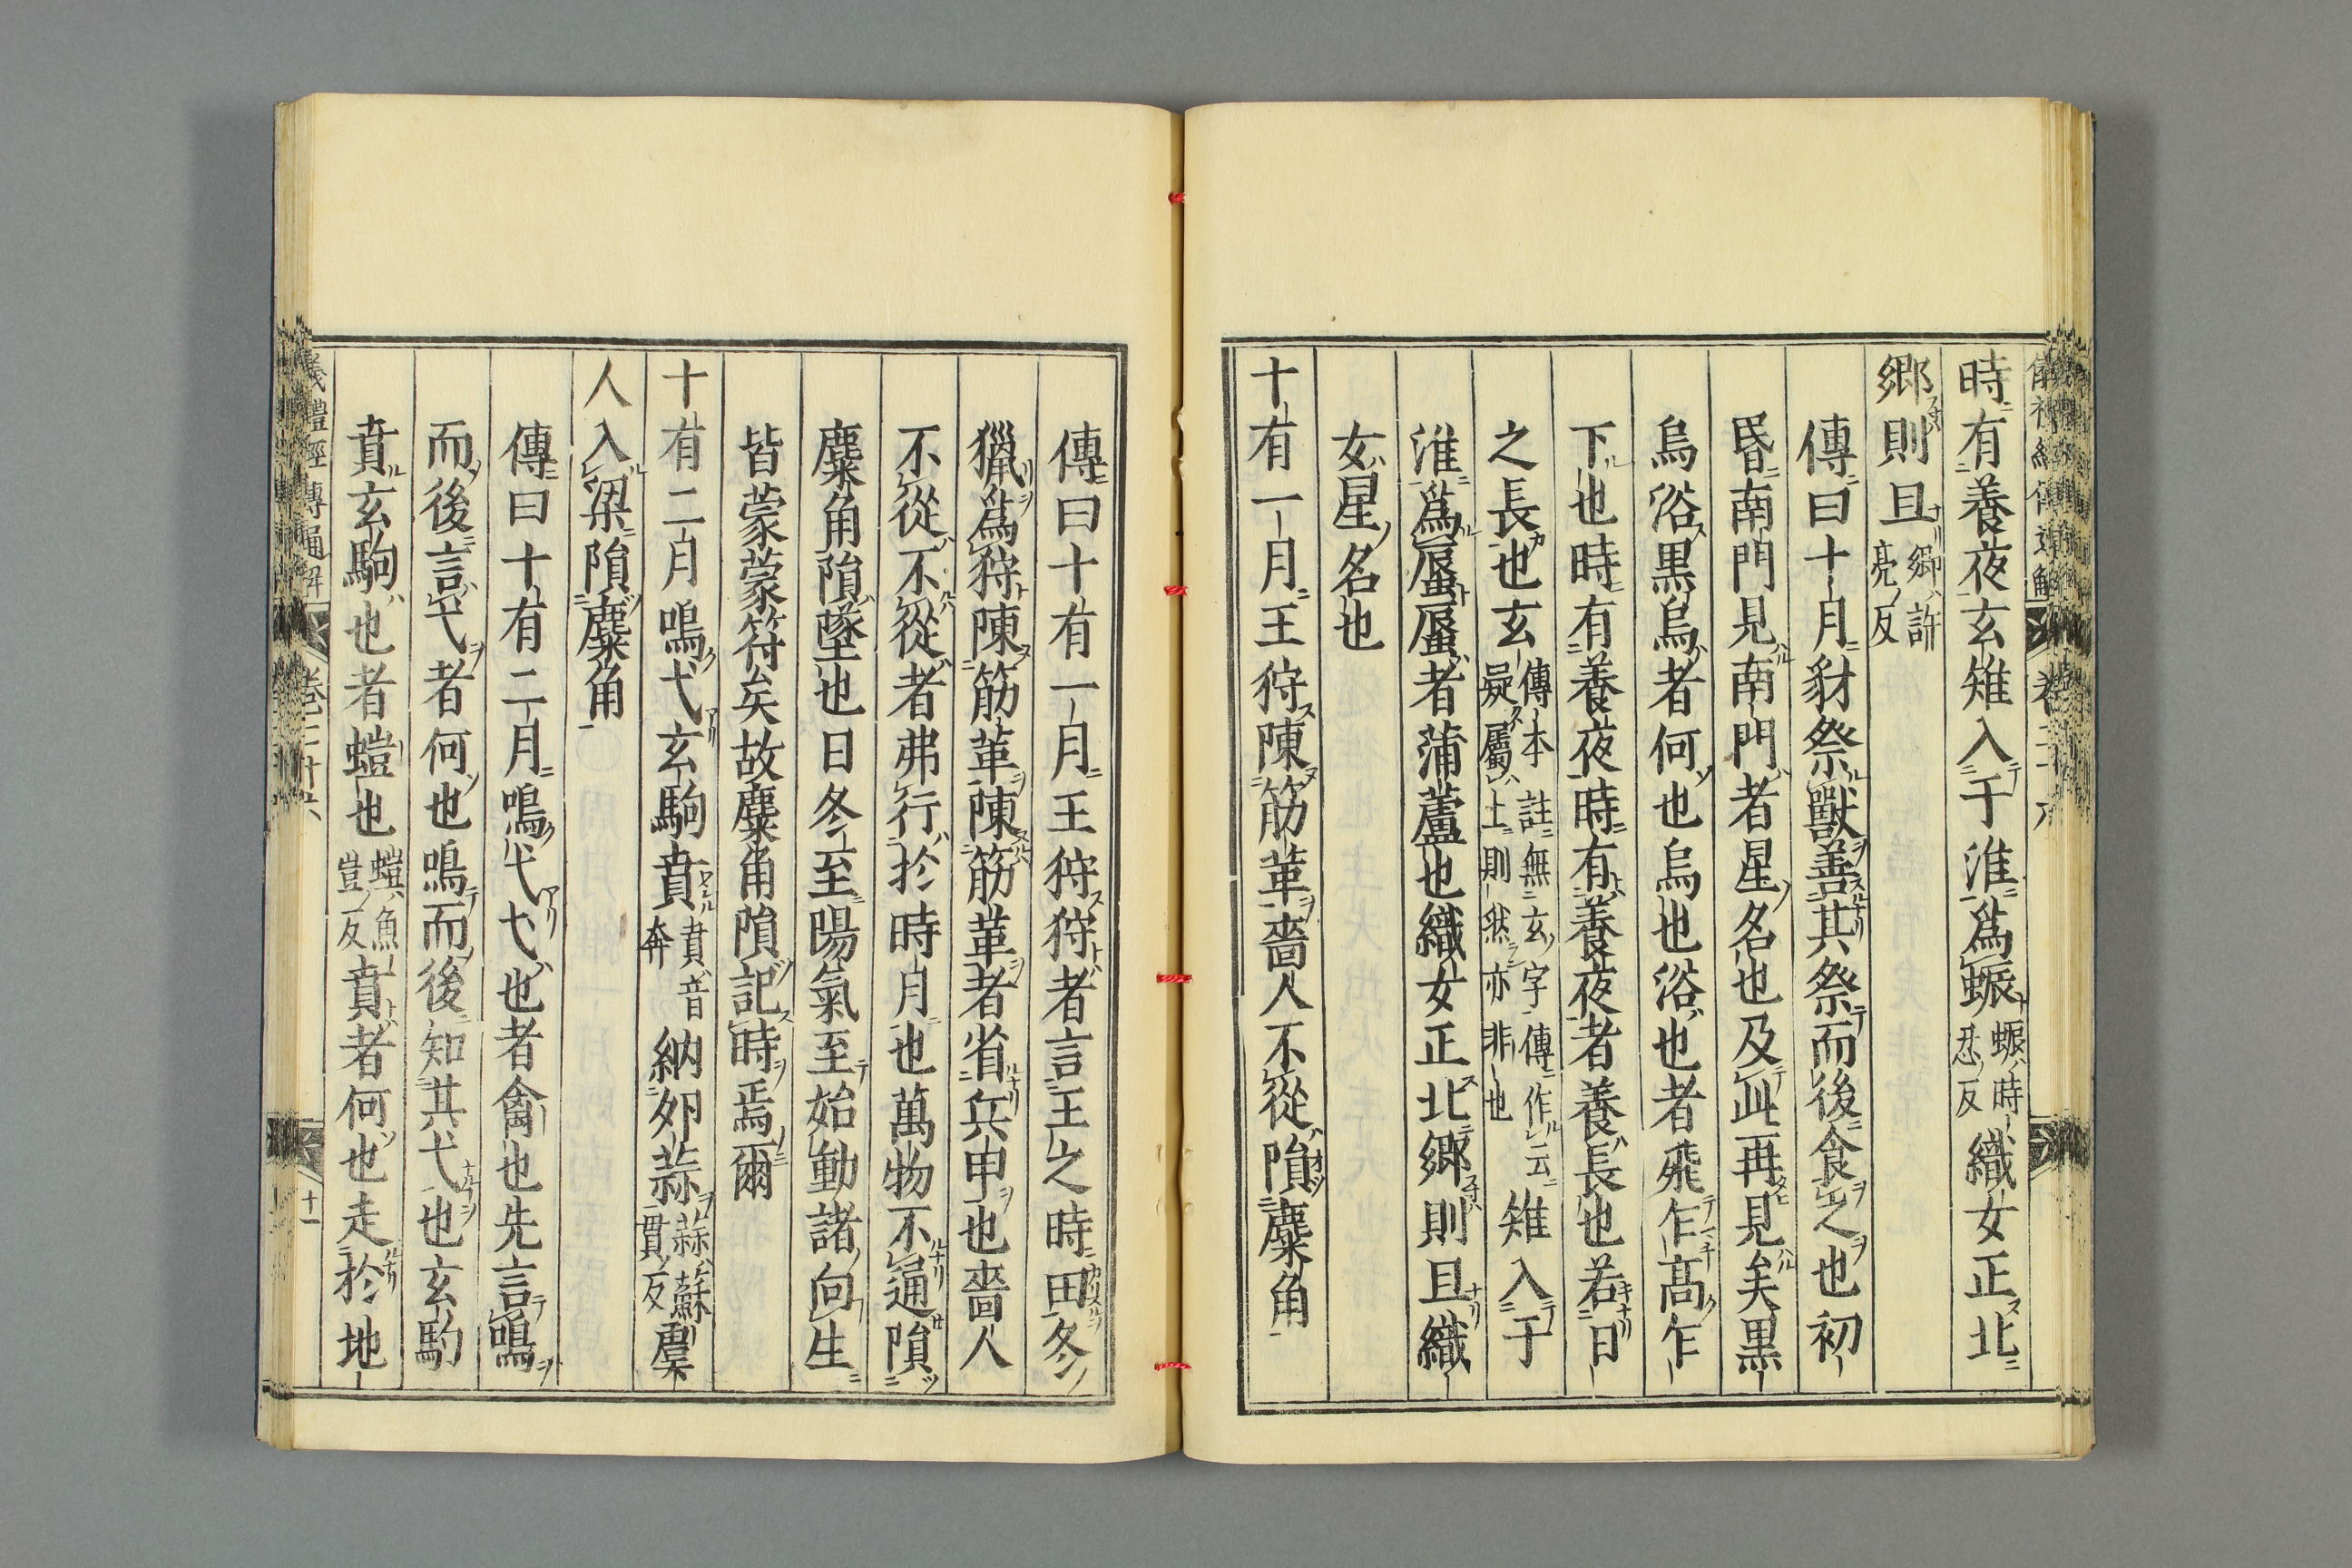 時有養夜玄雉入于淮爲蜄蜄時忍反織女正北
鄉則旦鄉許亮反
傳曰十月豺祭獸善其祭而後食之也初
昏南門見南門者星名也及此再見矣黒
烏浴黒烏者何也烏也浴也者飛乍髙乍
下也時有養夜時有養夜者養長也若日
之長也玄傳本註無玄字傳作云疑屬上則然亦非也雉入于
淮爲蜃蜃者蒲蘆也織女正北鄉則旦織
女星名也
十有一月王狩陳筋革嗇人不從隕麋角
傳曰十有一月王狩狩者言王之時田冬
獵爲狩陳筋革陳筋革者省兵甲也嗇人
不從不從者弗行於時月也萬物不通隕
麋角隕墜也日冬至陽氣至始動諸向生
皆蒙蒙符矣故麋角隕記時焉爾
十有二月鳴弋玄駒賁賁音奔納卵蒜蒜蘇貫反虞
人入梁隕麋角
傳曰十有二月鳴弋弋也者禽也先言鳴
而後言弋者何也鳴而後知其弋也玄駒
賁玄駒也者螘也螘魚豈反賁者何也走於地
儀禮經傳通解 卷二十六 十一